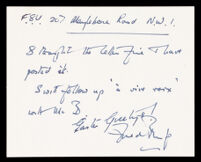 F84, 207 Marylebone Road N.W.1.
I thought the letter fine & have
posted it.
I will follow up "à vive voix"
with Mr B
Easter Greetings